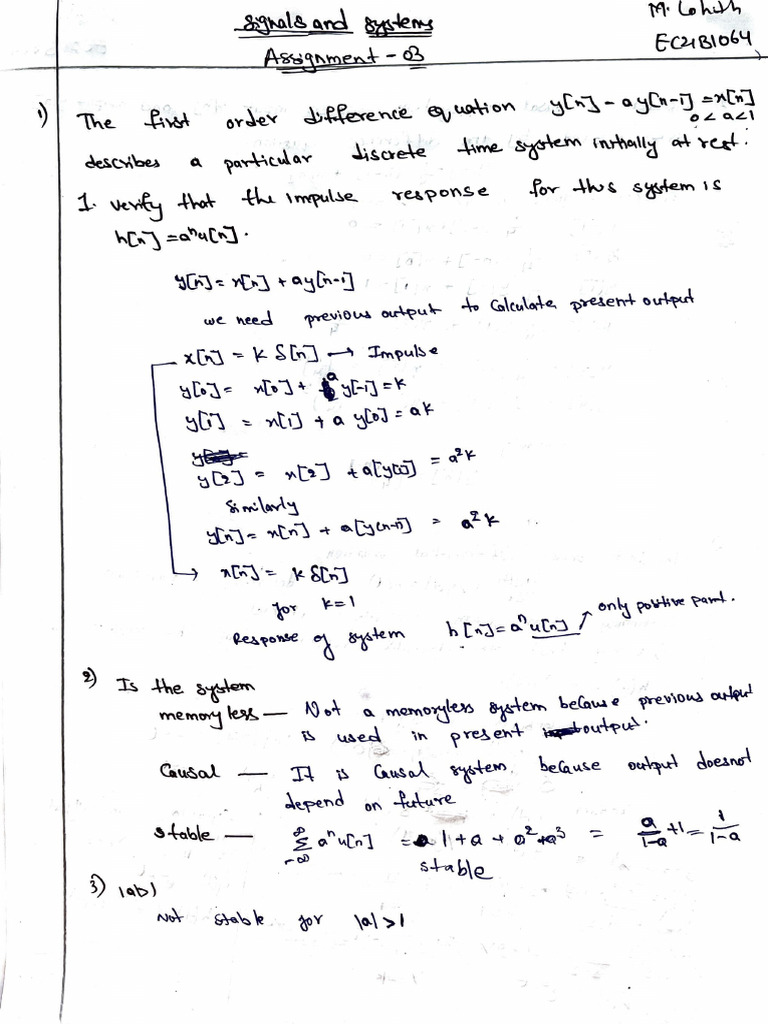 Signals and systems
M. Lohith
Assignment - 03
EC21B1064
1) The first order difference equation y[n] - ay[n-1] = x[n]
0 < a < 1
describes a particular discrete time system initially at rest.
1. verify that the impulse response for this system is
h[n] = aⁿu[n].
y[n] = x[n] + ay[n-1]
we need previous output to calculate present output
x[n] = k δ[n] → Impulse
y[0] = x[0] + a y[-1] = k
y[1] = x[1] + a y[0] = ak
y[2] = x[2] + a[y[1]] = a²k
Similarly
y[n] = x[n] + a[y[n-1]] = a²k
→ x[n] = k δ[n]
for k=1
Response of system h[n] = aⁿu[n] → only positive part.
2) Is the system
memoryless — Not a memoryless system because previous output
is used in present output.
Causal — It is Causal system because output doesnot
depend on future
stable — ∞Σ-∞ aⁿu[n] = 1 + a + a² + a³ = a/1-a + 1 = 1/1-a
stable
3) |a|>1
Not stable for |a|>1